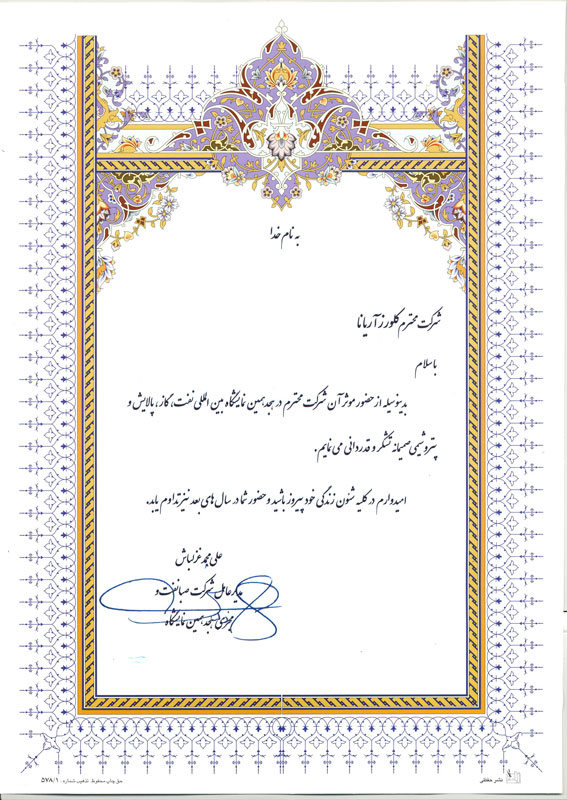 به نام خدا
شرکت محترم کلورز آریانا
باسلام
بدینوسیله از حضور موثر آن شرکت محترم در هجدهمین نمایشگاه بین المللی نفت، گاز، پالایش و
پتروشیمی صمیمانه تشکر و قدردانی می نمایم.
امیدوارم در کلیه شئون زندگی خود پیروز باشید و حضور شما در سال های بعد نیز تداوم یابد.
علی محمد غزلباش
مدیر عامل شرکت صبا نفت و
مجری هجدهمین نمایشگاه
نشر حققی
حق چاپ محفوظ تذهیب شماره : ۵۷۸/۱